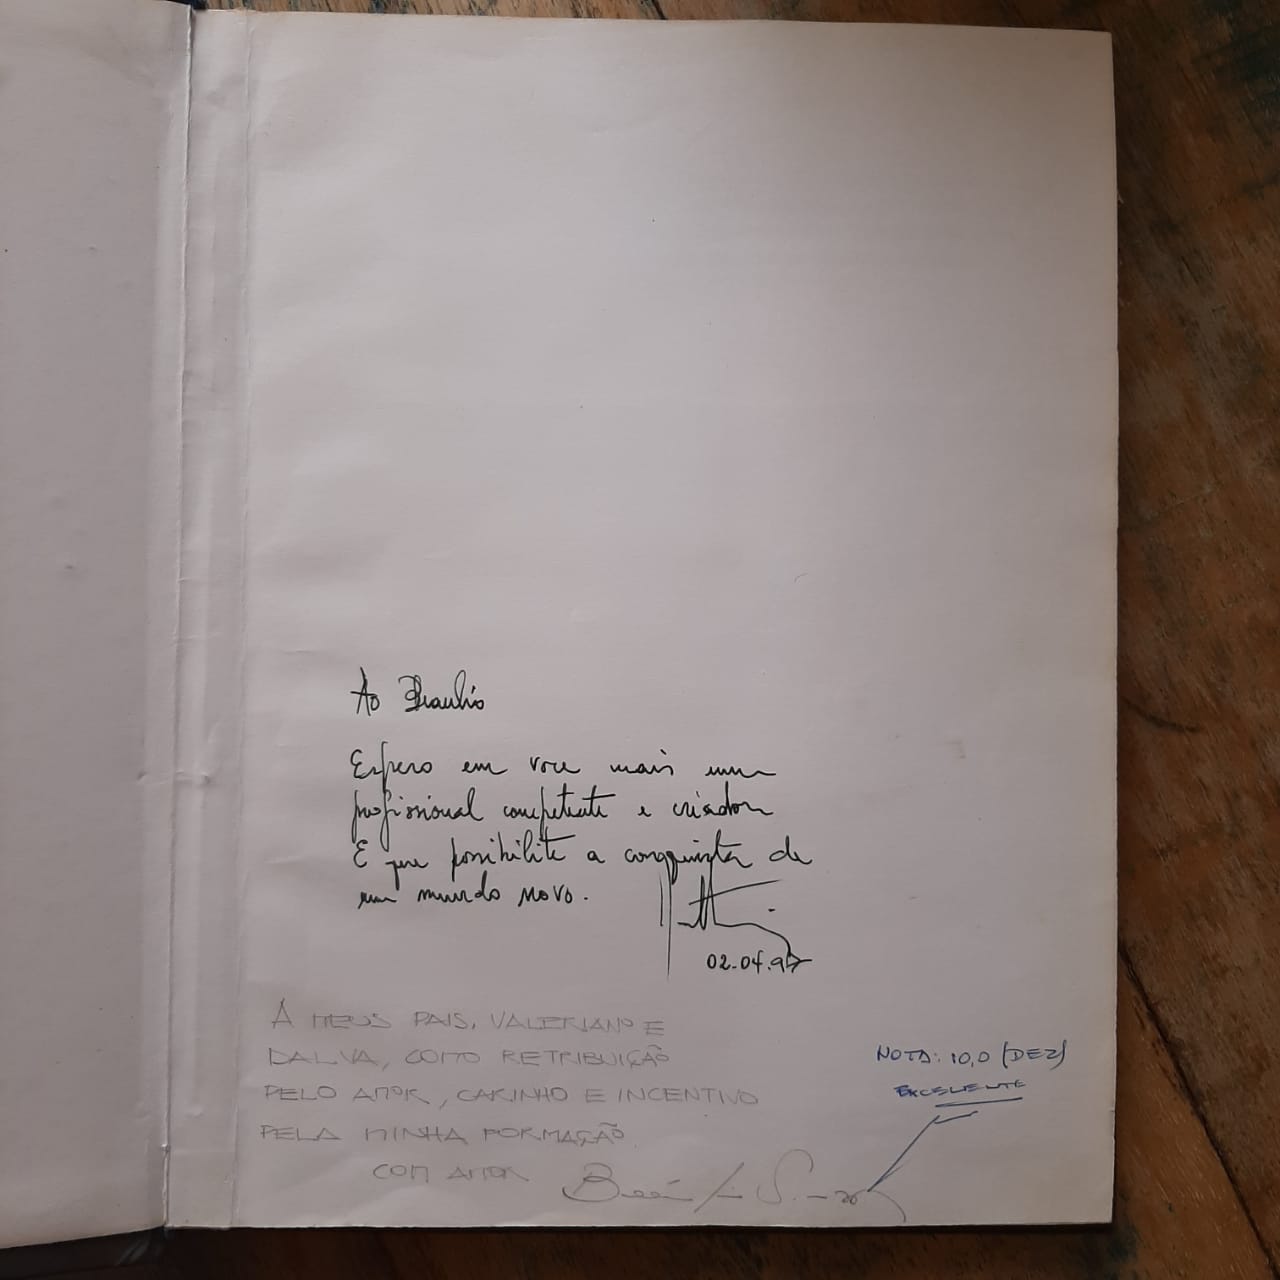 Ao Braulio
Espero em voce mais um
profissional competente e criador
E que possibilite a conquista de
um mundo novo.
02.04.97
A MEUS PAIS, VALERIANO E
DALVA, COMO RETRIBUIÇÃO
PELO AMOR, CARINHO E INCENTIVO
PELA MINHA FORMAÇÃO
COM AMOR
NOTA: 10,0 (DEZ)
EXCELENTE